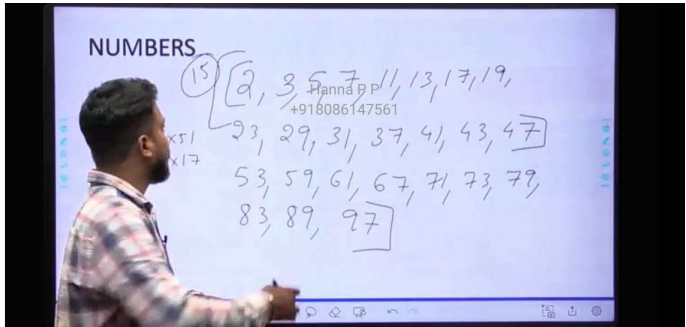 NUMBERS
15 [2, 3, 5, 7, 11, 13, 17, 19,
Hanna P P
+918086147561
23, 29, 31, 37, 41, 43, 47]
×51
×17
53, 59, 61, 67, 71, 73, 79,
83, 89, 97]